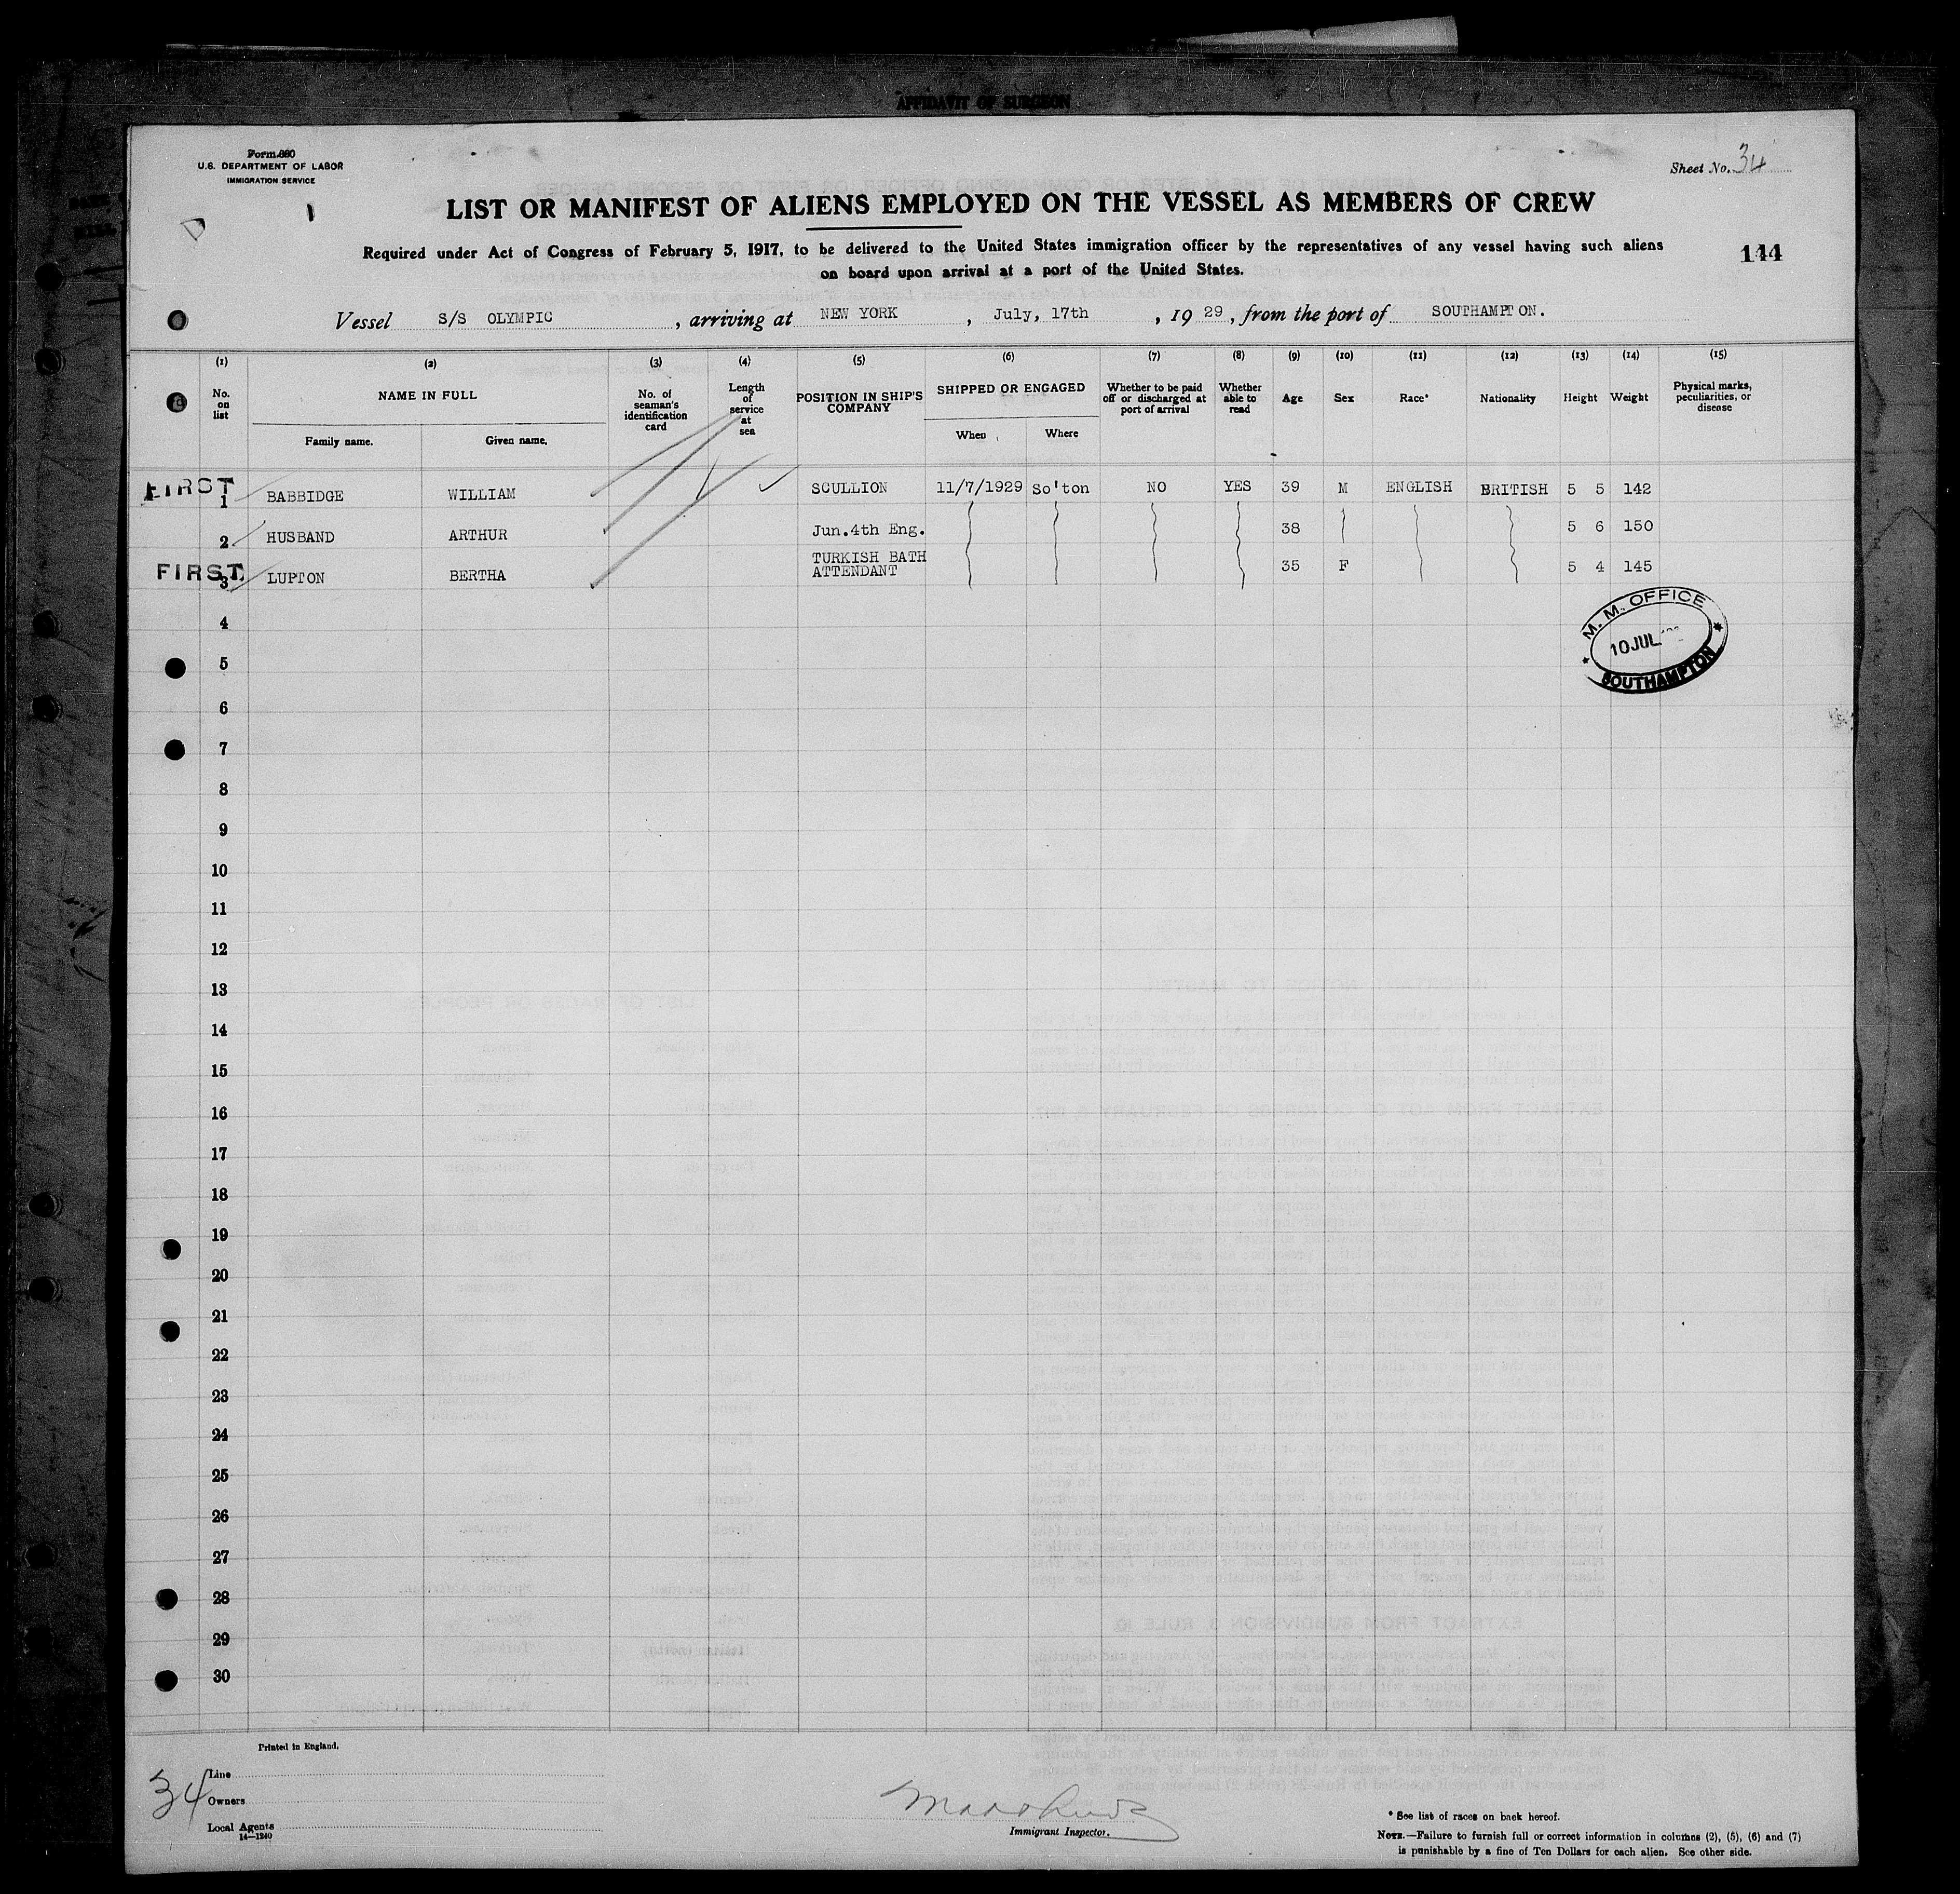 AFFIDAVIT OF SURGEON
Form 680
U.S. DEPARTMENT OF LABOR
IMMIGRATION SERVICE
Sheet No. 34
LIST OR MANIFEST OF ALIENS EMPLOYED ON THE VESSEL AS MEMBERS OF CREW
Required under Act of Congress of February 5, 1917, to be delivered to the United States immigration officer by the representatives of any vessel having such aliens
on board upon arrival at a port of the United States.
144
Vessel S/S OLYMPIC, arriving at NEW YORK, July, 17th, 1929, from the port of SOUTHAMPTON.
(1) (2) (3) (4) (5) (6) (7) (8) (9) (10) (11) (12) (13) (14) (15)
No. on list
NAME IN FULL
Family name. Given name.
No. of seaman's identification card
Length of service at sea
POSITION IN SHIP'S COMPANY
SHIPPED OR ENGAGED
When Where
Whether to be paid off or discharged at port of arrival
Whether able to read
Age Sex Race* Nationality Height Weight
Physical marks, peculiarities, or disease
FIRST 1 BABBIDGE WILLIAM SCULLION 11/7/1929 So'ton NO YES 39 M ENGLISH BRITISH 5 5 142
2 HUSBAND ARTHUR Jun.4th Eng. 38 5 6 150
FIRST. 3 LUPTON BERTHA TURKISH BATH ATTENDANT 35 F 5 4 145
M. M. OFFICE
10 JUL
SOUTHAMPTON
4
5
6
7
8
9
10
11
12
13
14
15
16
17
18
19
20
21
22
23
24
25
26
27
28
29
30
Printed in England.
34
Line
Owners
Local Agents
14—1240
Immigrant Inspector.
* See list of races on back hereof.
NOTE.—Failure to furnish full or correct information in columns (2), (5), (6) and (7)
is punishable by a fine of Ten Dollars for each alien. See other side.